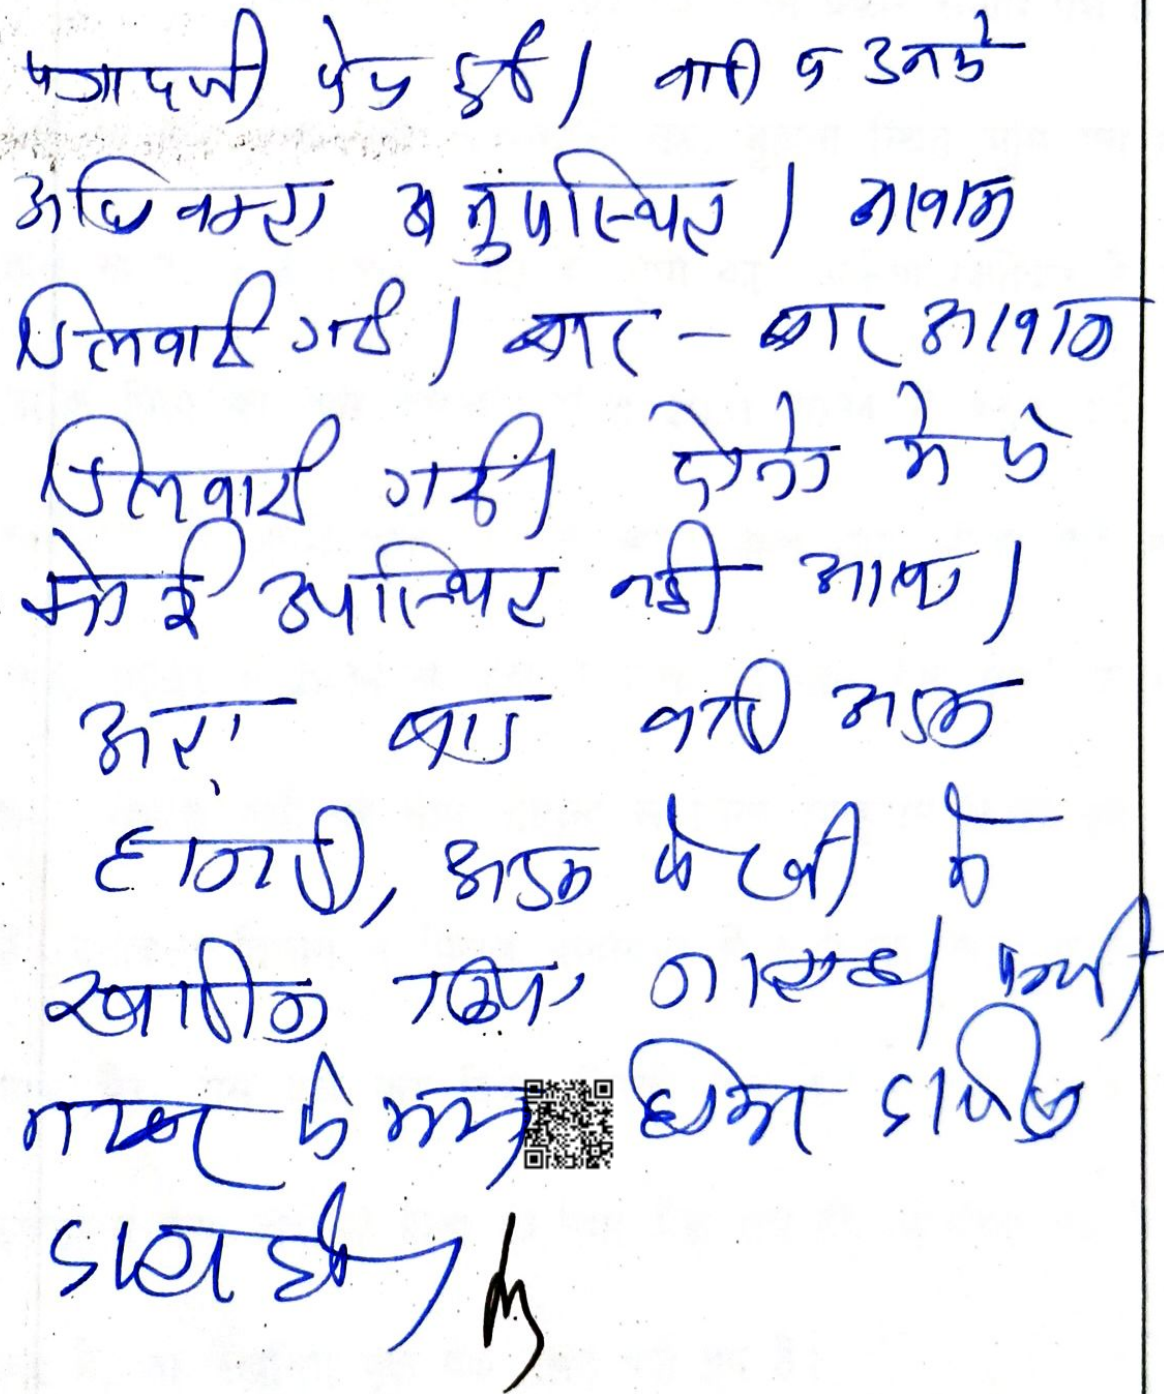 पत्रावली पेश हुई। वादी व उनके
अधिवक्ता अनुपस्थित। आवाज
दिलवाई गई। बार - बार आवाज
दिलवाई गई। दोनो मे से
कोई उपस्थित नही आया।
अतः वाद वादी अदम
हाजरी, अदम पेरवी मे
खारिज किया जाता है।
नम्बर से कम होकर दाखिल
दफ्तर हो।